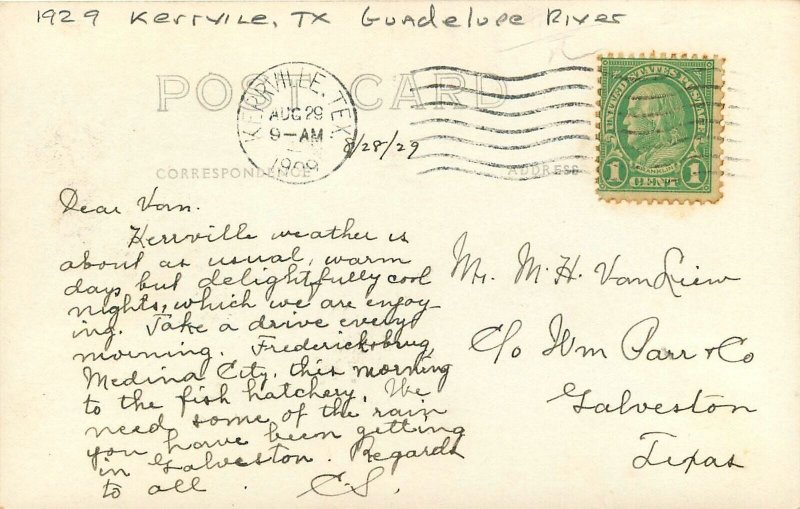 1929 Kerrville, TX Guadelupe River
POST CARD
KERRVILLE, TEX.
AUG 29
9-AM
1929
8/28/29
UNITED STATES POSTAGE
FRANKLIN
1 CENT 1
CORRESPONDENCE
ADDRESS
Dear Van.
Kerrville weather is
about as usual, warm
days but delightfully cool
nights, which we are enjoy-
ing. Take a drive every
morning. Fredericksbrug,
Medina City, this morning
to the fish hatchery. We
need some of the rain
you have been getting
in Galveston. Regards
to all. C.S.
Mr. M. H. Van Liew
C/o Wm Parr & Co
Galveston
Texas